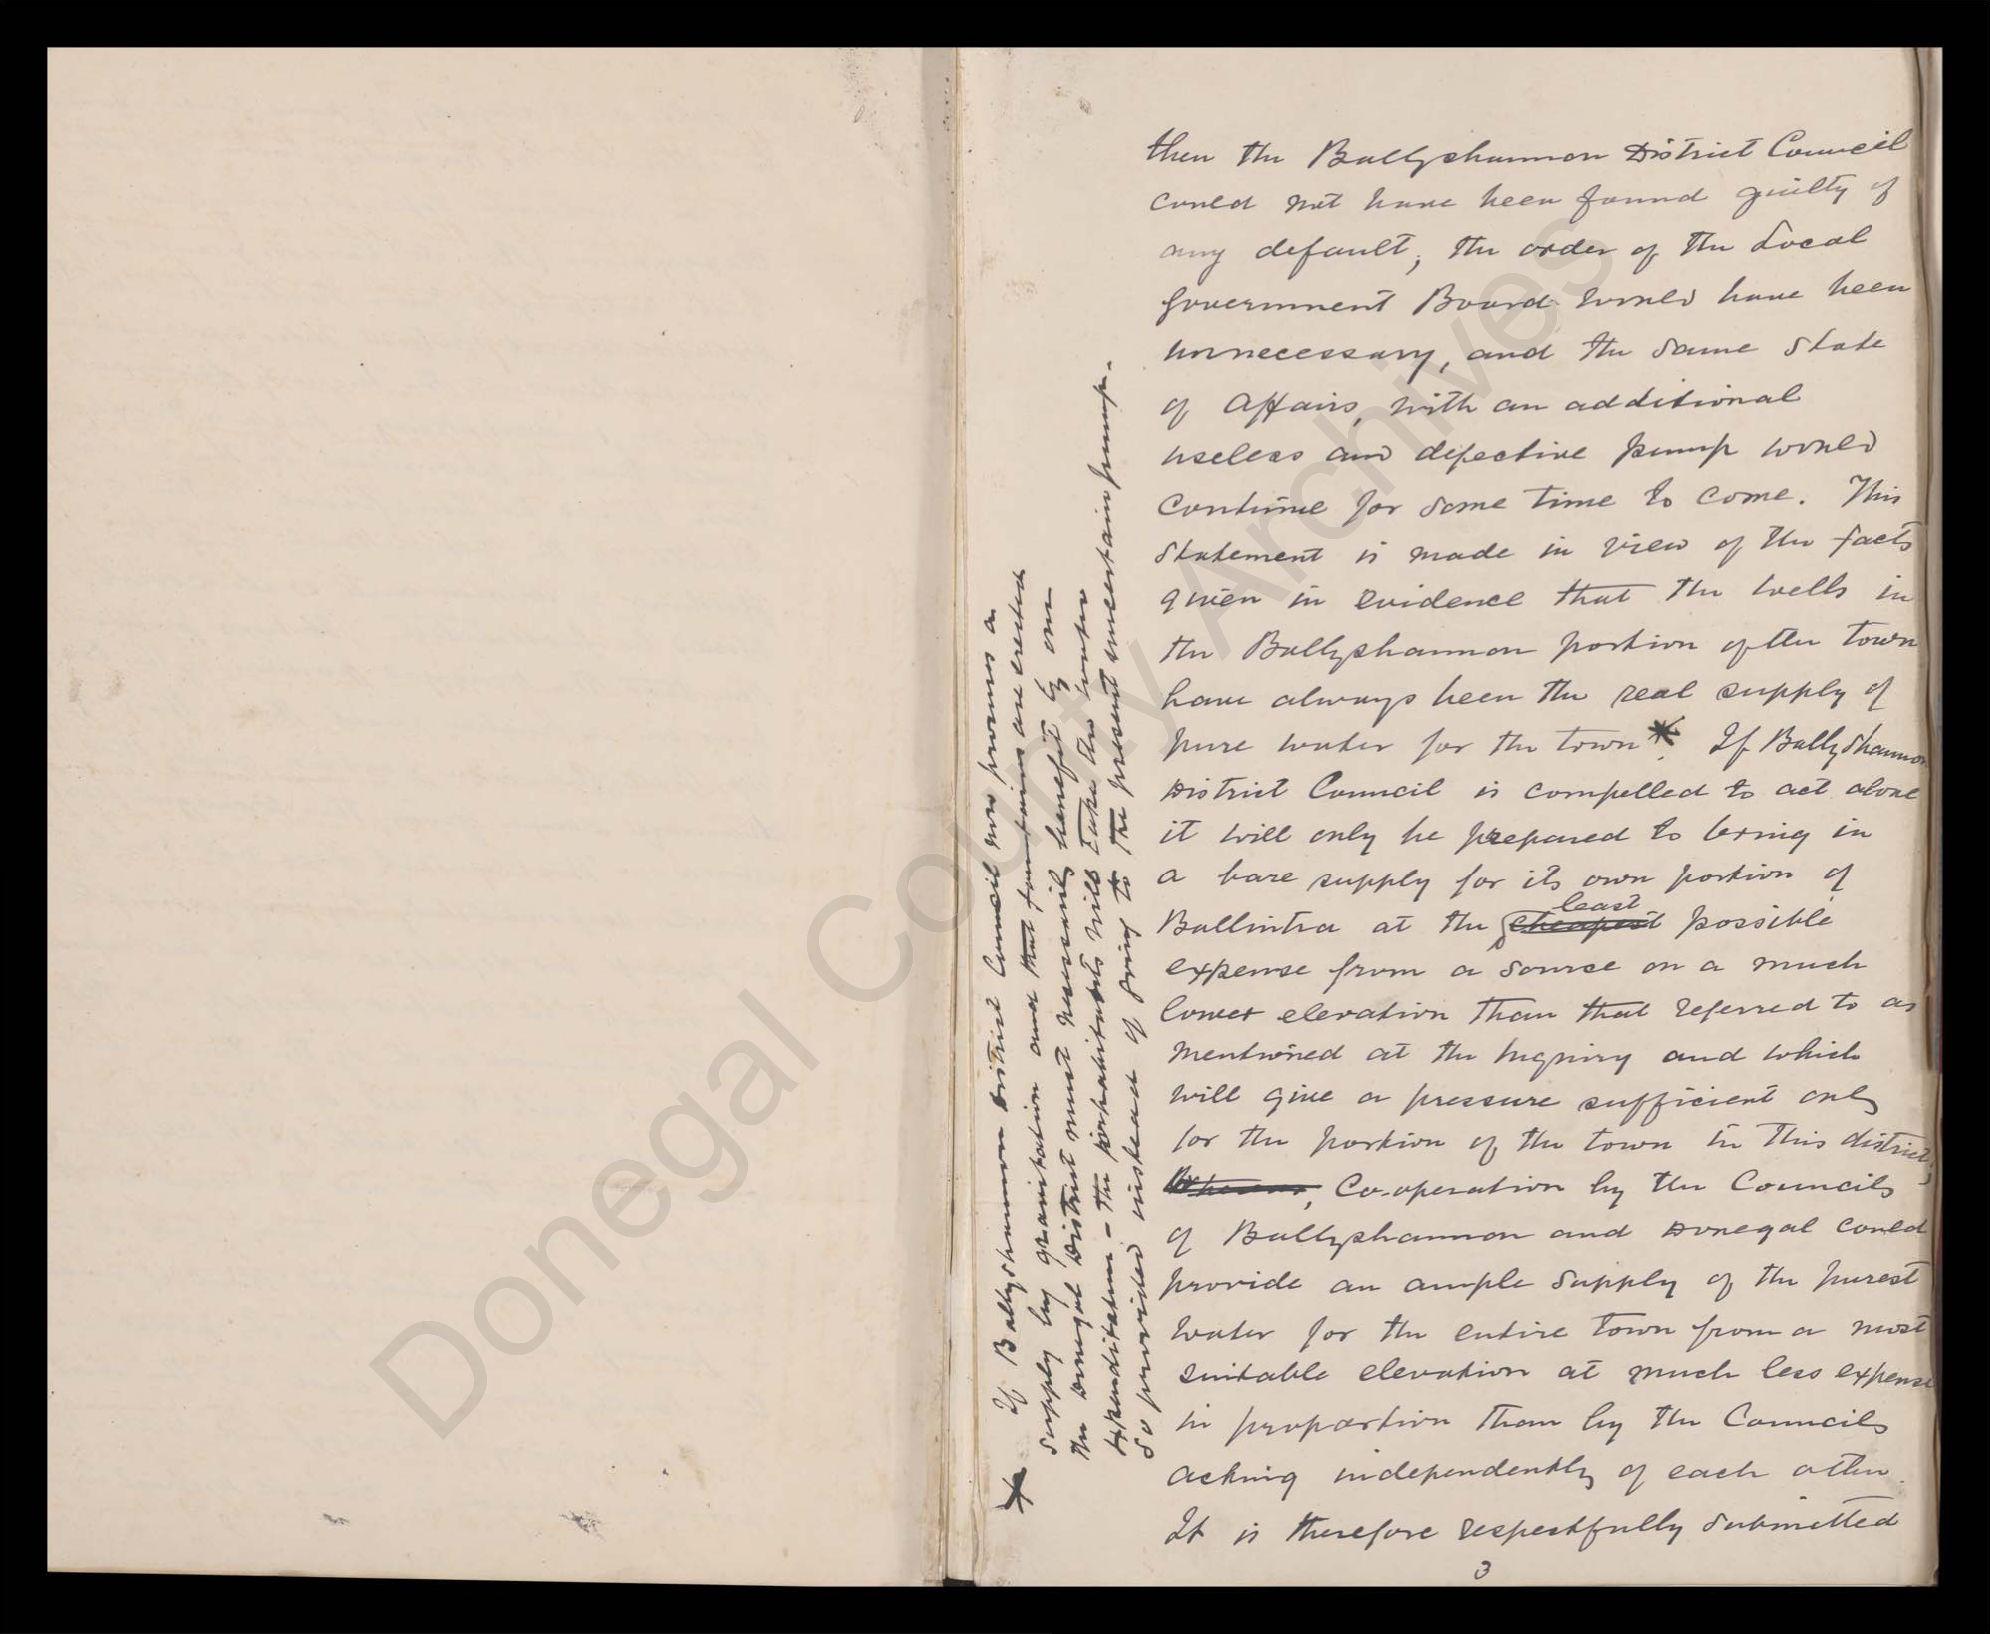 then the Ballyshannon District Council
could not have been found guilty of
any default, the order of the Local
Government Board would have been
unnecessary, and the same state
of Affairs, with an additional
useless and defective pump would
continue for some time to come. This
statement is made in view of the facts
given in evidence that the wells in
the Ballyshannon portion of the town
have always been the real supply of
pure water for the town *. If Ballyshannon
District Council is compelled to act alone
it will only be prepared to bring in
a bare supply for its own portion of
Ballintra at the cheapest least possible
expense from a source on a much
lower elevation than that referred to as
mentioned at the Inquiry and which
will give a pressure sufficient only
for the portion of the town in this district;
Whereas, Co-operation by the Councils
of Ballyshannon and Donegal could
provide an ample supply of the purest
water for the entire town from a most
suitable elevation at much less expense
in proportion than by the Councils
acting independently of each other.
It is therefore respectfully submitted
3
* If Ballyshannon District Council now promises a
supply by gravitation and that fountains are erected
the Donegal District must necessarily benefit by our
expenditure - the inhabitants will take the water
so provided instead of going to the present uncertain pump.
Donegal County Archives